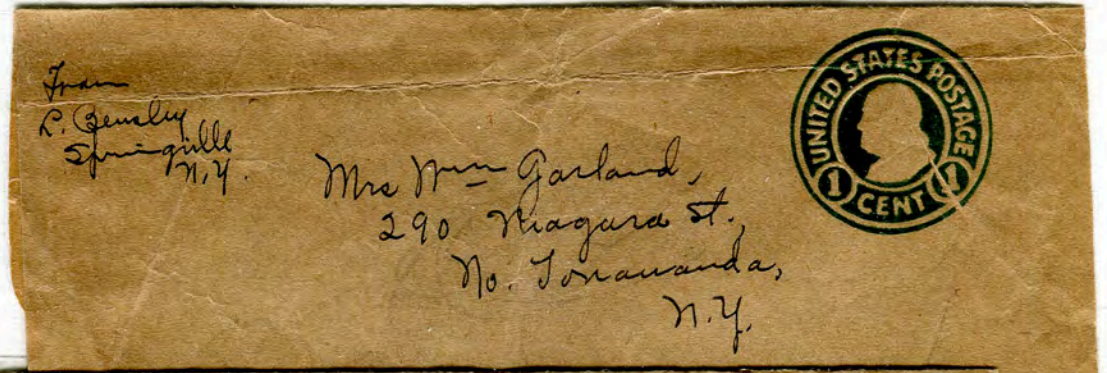 From
L. Bensley
Springville
N.Y.
Mrs Wm Garland,
290 Niagara St.,
No. Tonawanda,
N.Y.
UNITED STATES POSTAGE
1 CENT 1